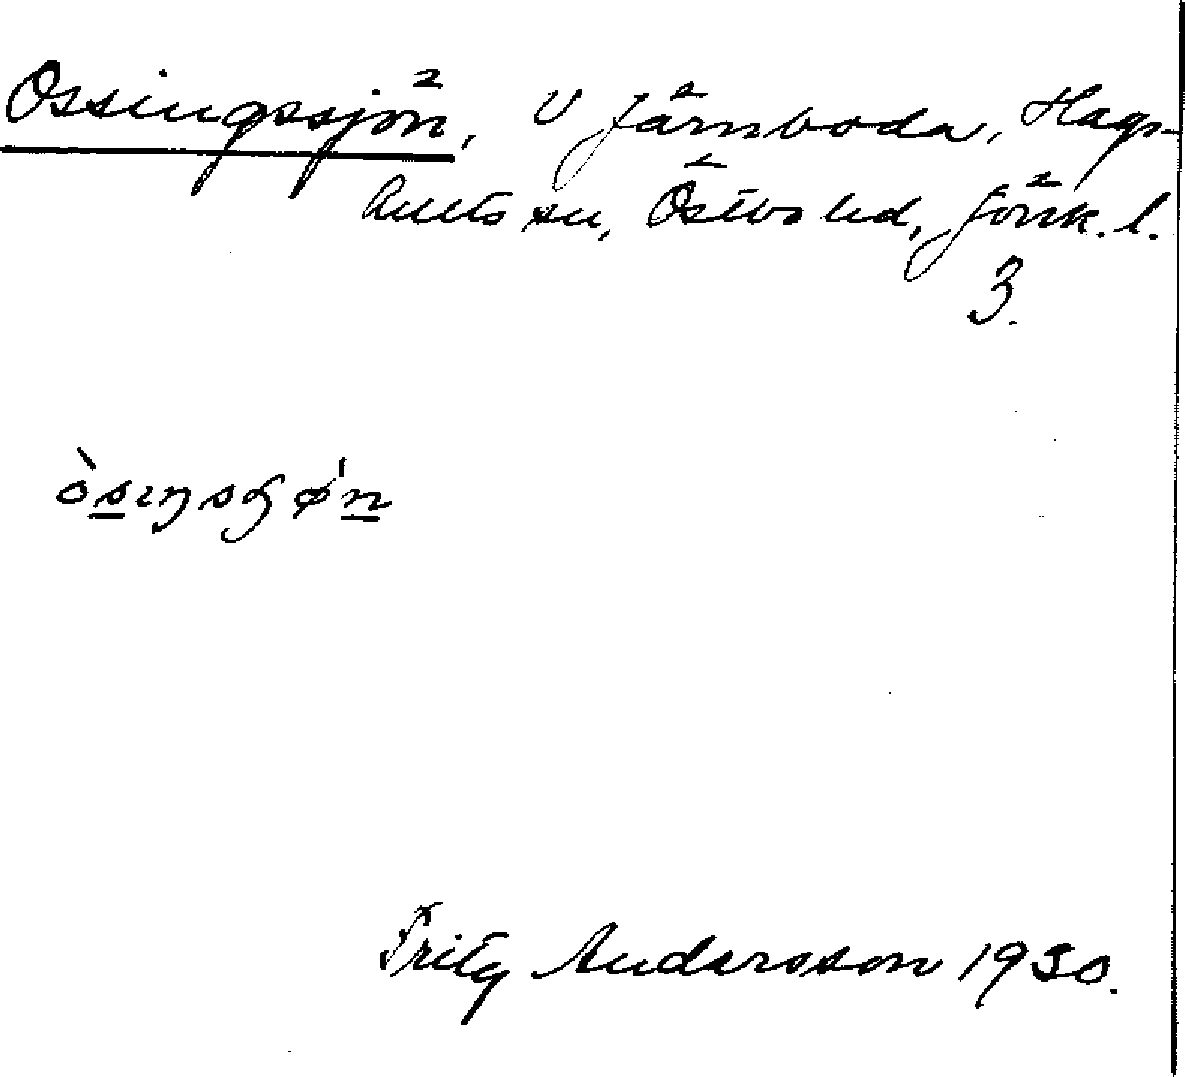 Ossingssjön, V Järnboda, Hags-
hults sn, Östbo hd, Jönk. l.
3.
òsıŋsɧø'n
Fritz Andersson 1930.